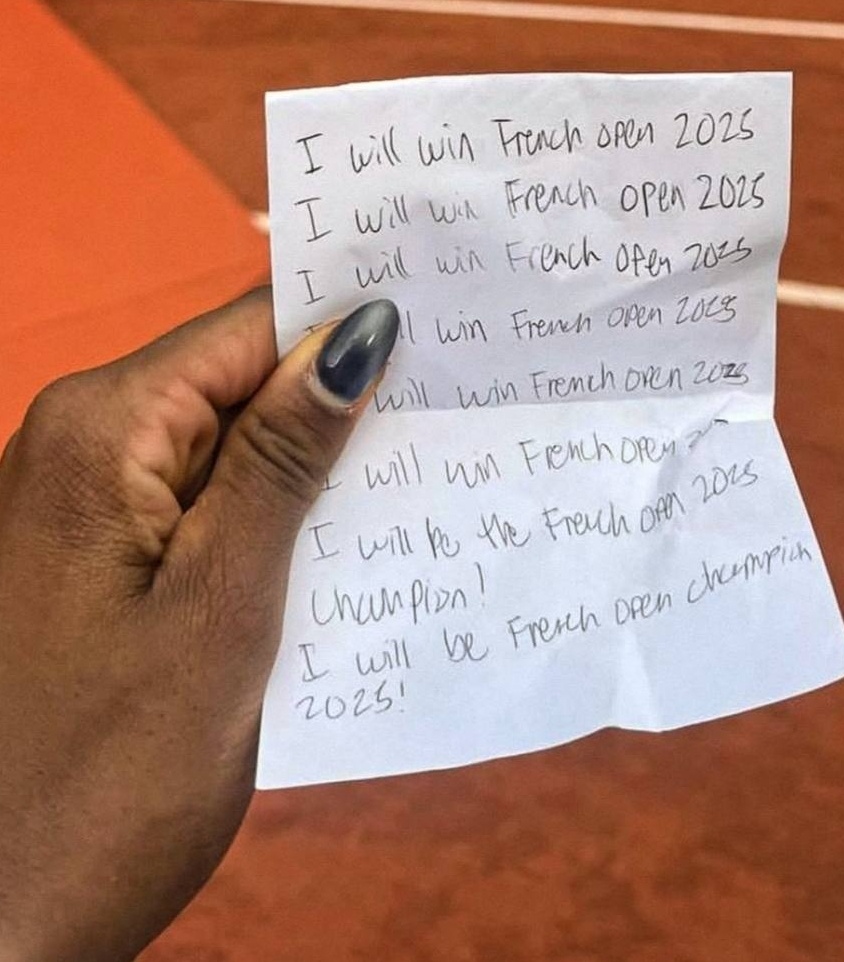 I will win French open 2025
I will win French open 2025
I will win French open 2025
win French open 2025
will win French open 2025
I will win French open
I will be the French open 2025
Champion!
I will be French open champion
2025!